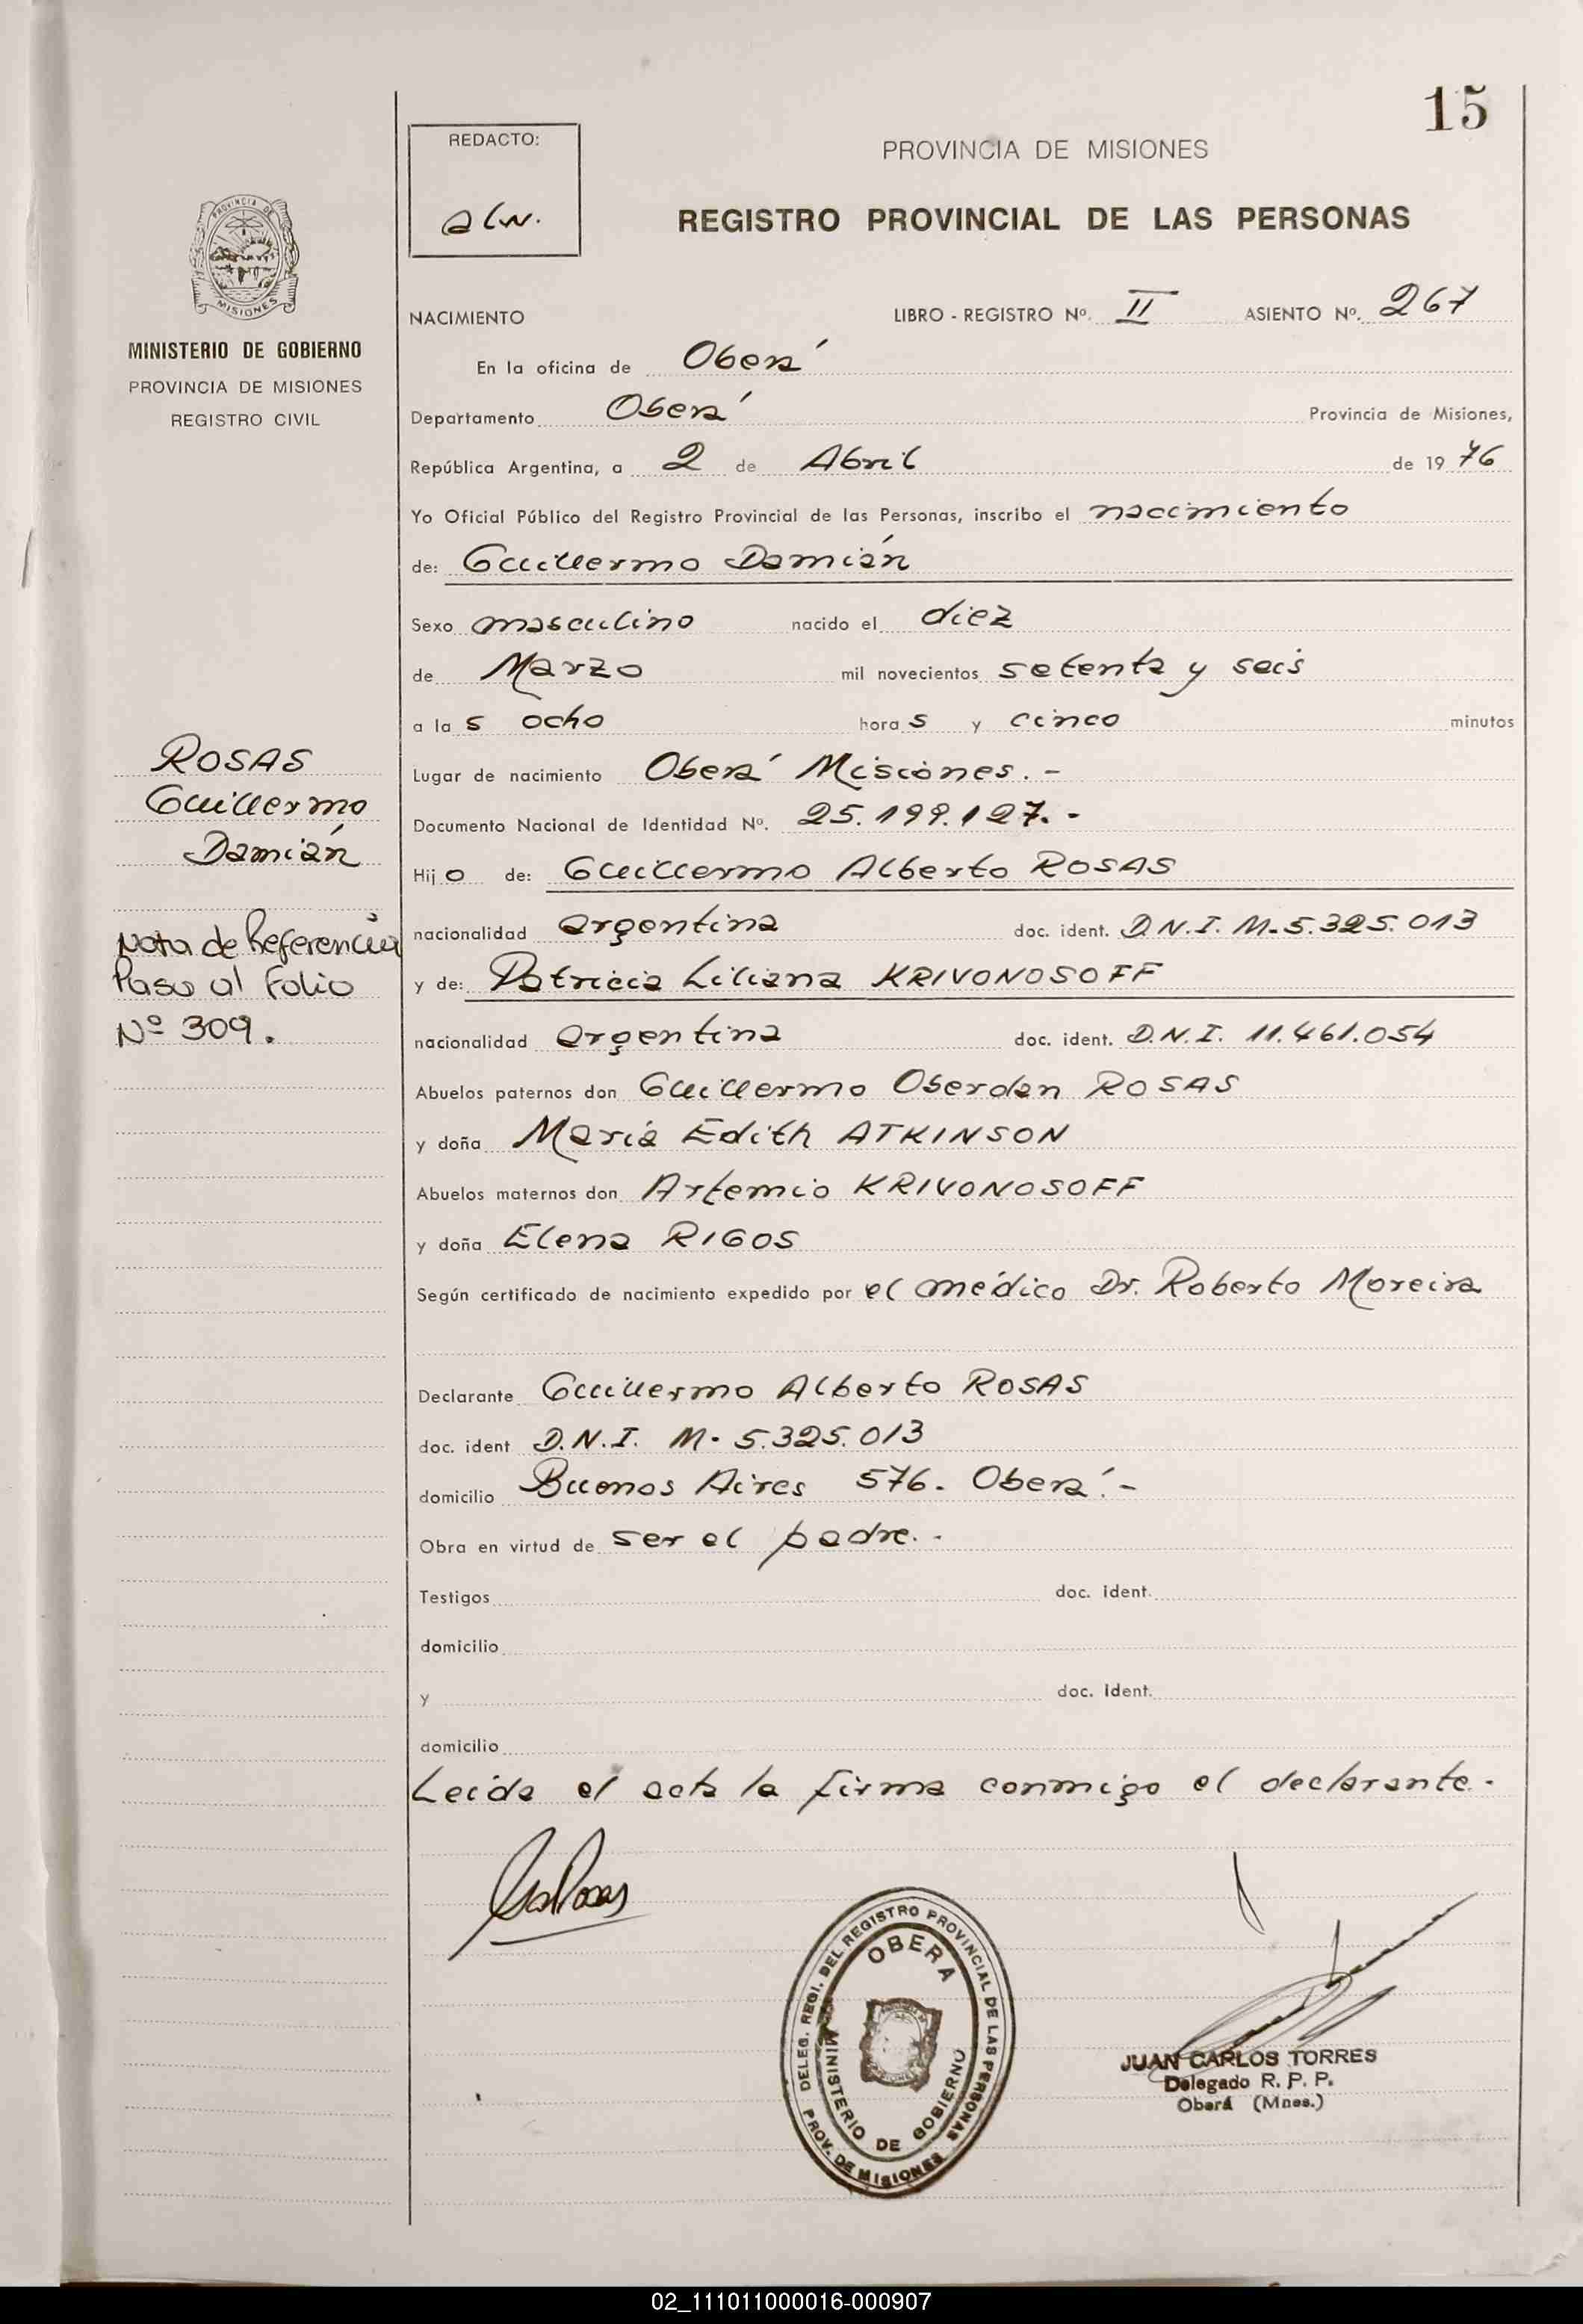 15
REDACTO:
alw.
PROVINCIA DE MISIONES
REGISTRO PROVINCIAL DE LAS PERSONAS
MINISTERIO DE GOBIERNO
PROVINCIA DE MISIONES
REGISTRO CIVIL
NACIMIENTO LIBRO - REGISTRO Nº. II ASIENTO Nº. 267
En la oficina de Oberá
Departamento Oberá Provincia de Misiones,
República Argentina, a 2 de Abril de 19 76
Yo Oficial Público del Registro Provincial de las Personas, inscribo el nacimiento
de: Guillermo Damián
Sexo masculino nacido el diez
de Marzo mil novecientos setenta y seis
a la s ocho hora s y cinco minutos
Lugar de nacimiento Oberá Misiones. -
Documento Nacional de Identidad Nº. 25.199.127. -
Hij o de: Guillermo Alberto ROSAS
nacionalidad argentina doc. ident. D.N.I. M-5.325.013
y de: Patricia Liliana KRIVONOSOFF
nacionalidad argentina doc. ident. D.N.I. 11.461.054
Abuelos paternos don Guillermo Oberdan ROSAS
y doña María Edith ATKINSON
Abuelos maternos don Artemio KRIVONOSOFF
y doña Elena RIGOS
Según certificado de nacimiento expedido por el médico Dr. Roberto Moreira
Declarante Guillermo Alberto ROSAS
doc. ident D.N.I. M- 5.325.013
domicilio Buenos Aires 576. Oberá. -
Obra en virtud de ser el padre. -
Testigos doc. ident.
domicilio
y doc. ident.
domicilio
Leída el acta la firma conmigo el declarante.
ROSAS
Guillermo
Damián
Nota de Referencia
Paso al Folio
Nº 309.
DELEG. REGI. DEL REGISTRO PROVINCIAL DE LAS PERSONAS
PROV. DE MISIONES
OBERA
MINISTERIO DE GOBIERNO
JUAN CARLOS TORRES
Delegado R. P. P.
Oberá (Mnes.)
02_111011000016-000907